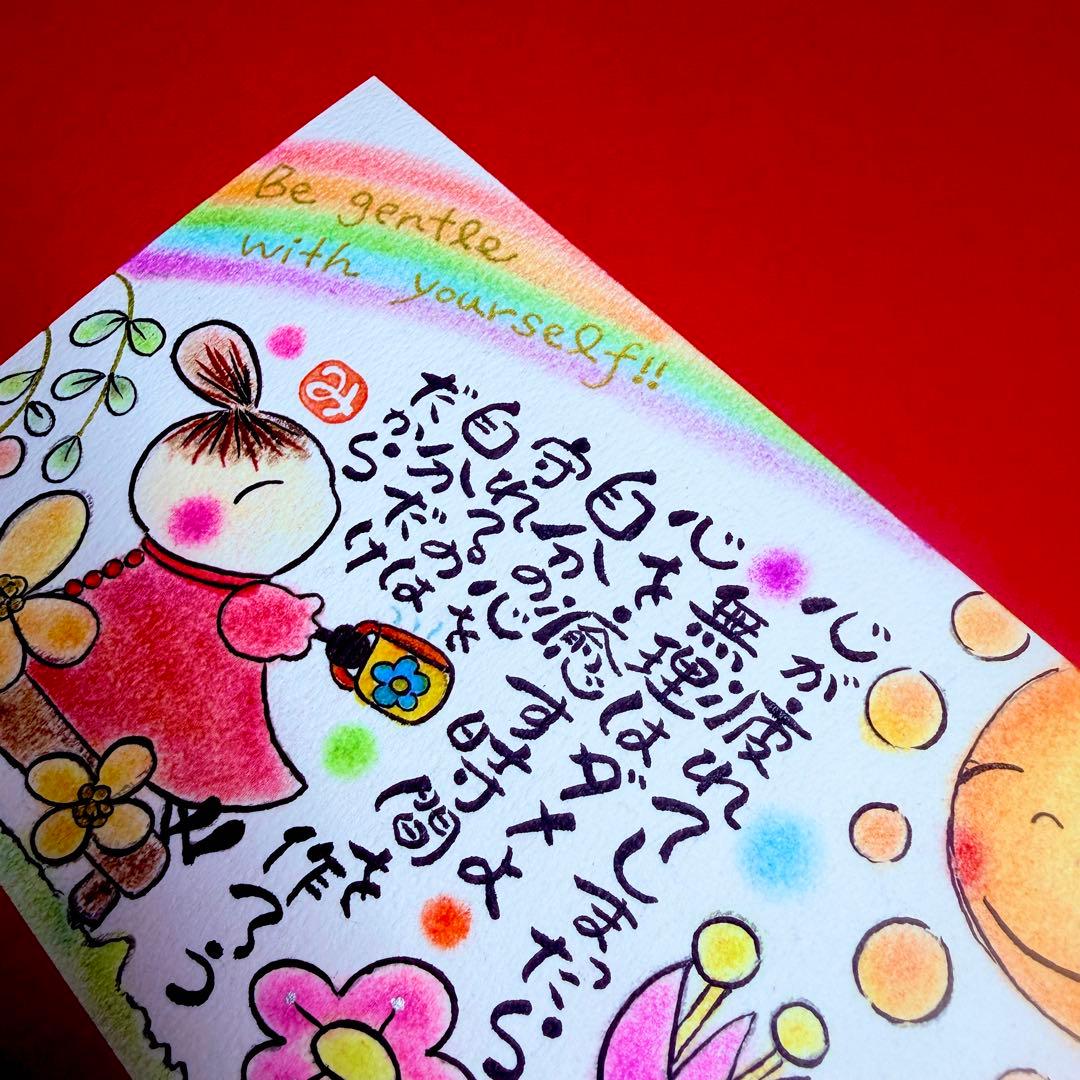 Be gentle
with yourself!!
心が疲れてしまったら
無理はダメよ
心を癒す時間を作ろう
自分の心を
守れるのは
自分だけ
だから。
み